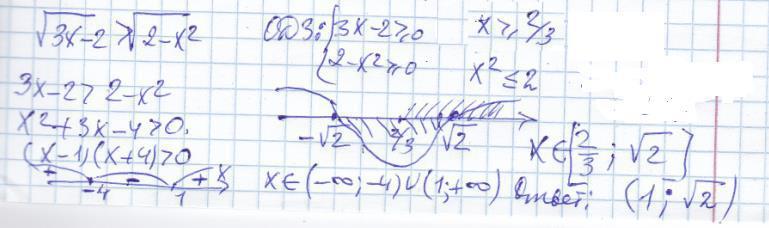 √3x-2 > √2-x²
ОДЗ: { 3x-2≥0
2-x²≥0
x ≥ 2/3
x² ≤ 2
3x-2 > 2-x²
x²+3x-4>0.
(x-1)(x+4)>0
+ -4 - 1 + x
-√2 2/3 √2
x∈[2/3; √2]
x∈(-∞;-4)∪(1;+∞) Ответ: (1;√2)